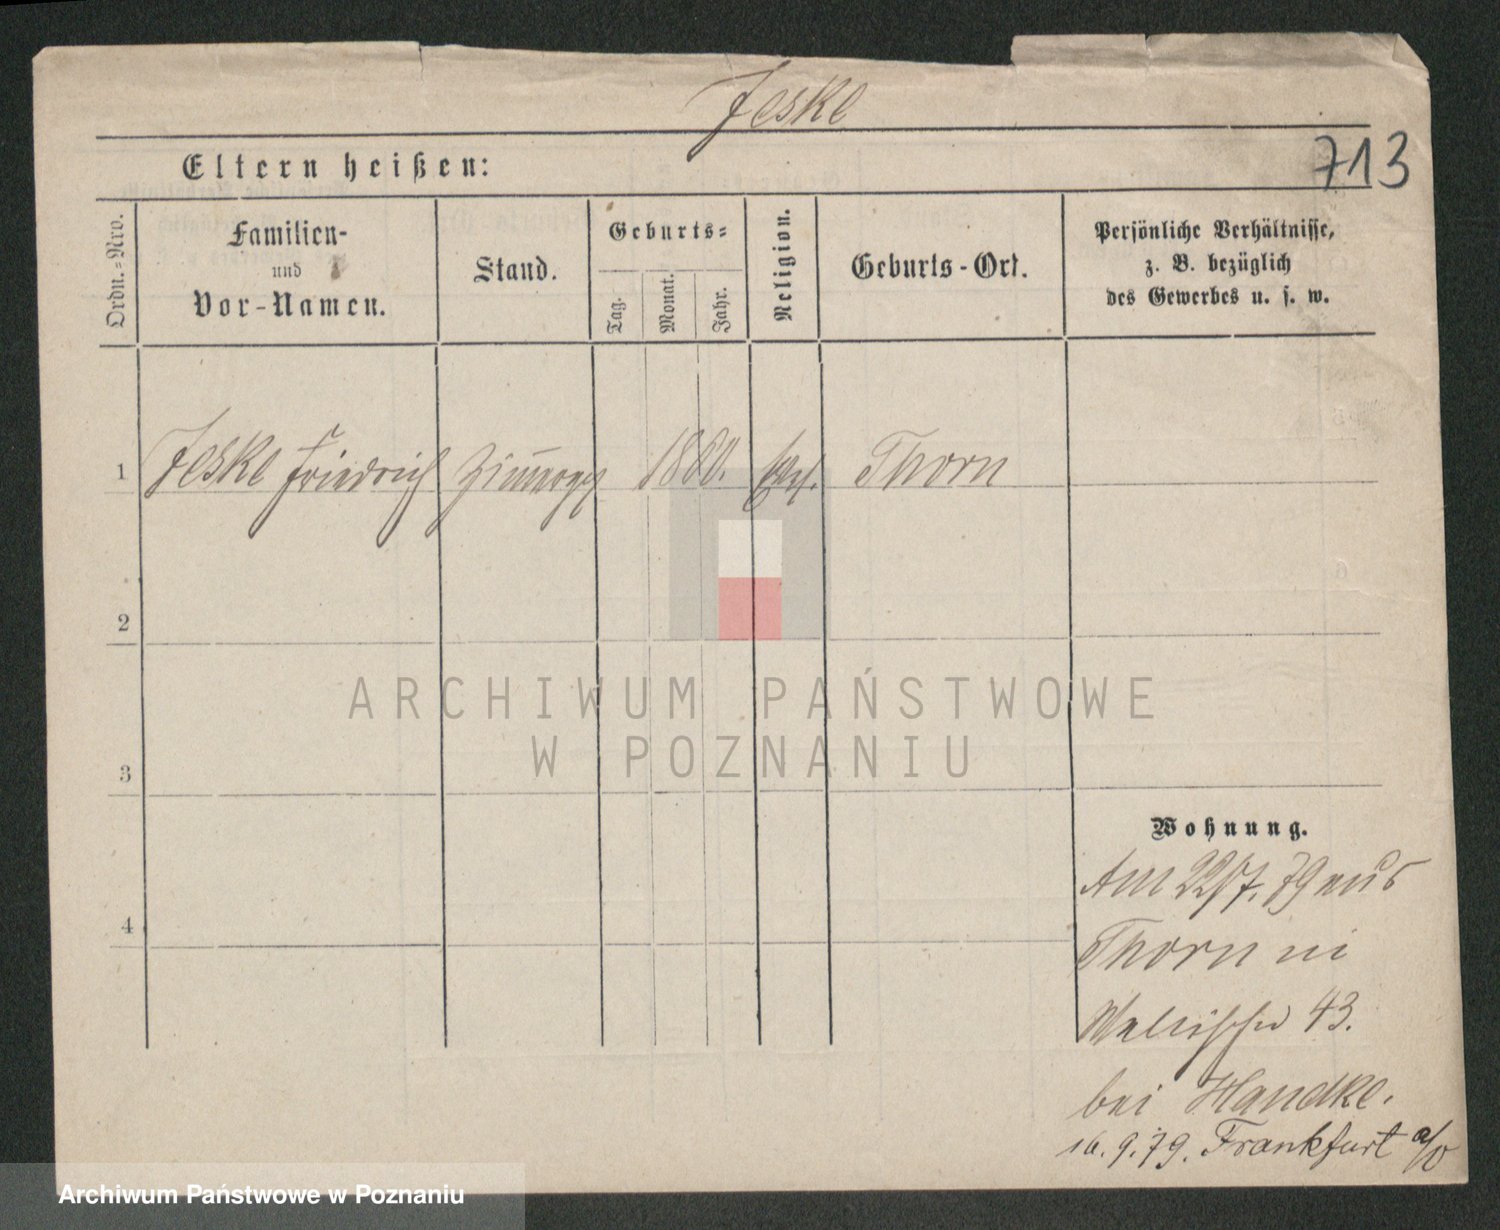 Jeske
713
Eltern heißen:
Ordn.-Nro.
Familien-
und
Vor-Namen.
Stand.
Geburts-
Tag.
Monat.
Jahr.
Religion.
Geburts-Ort.
Persönliche Verhältnisse,
z. B. bezüglich
des Gewerbes u. s. w.
1 Jeske Friedrich 1860. Thorn
2
3
4
Wohnung.
Am 22/7. 79 aus
Thorn in
Wallischei 43.
bei Handke.
16. 9. 79. Frankfurt a/O
ARCHIWUM PAŃSTWOWE
W POZNANIU
Archiwum Państwowe w Poznaniu